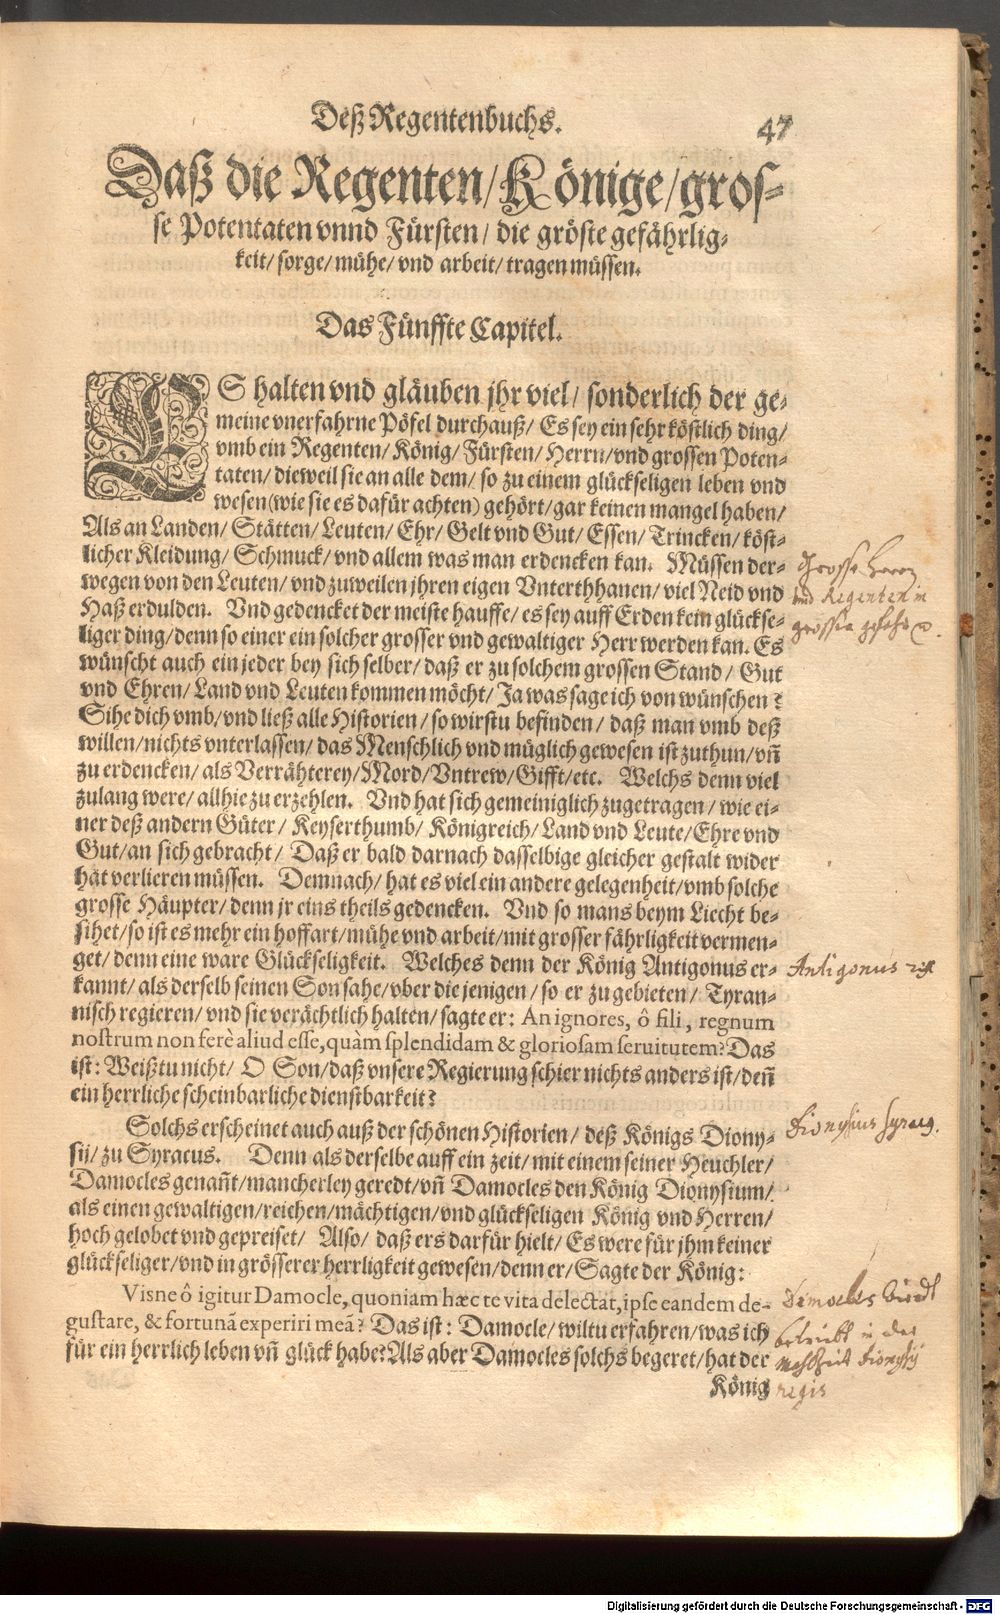 Deß Regentenbuchs.
47
Daß die Regenten/Könige/gros-
se Potentaten vnnd Fürsten/ die gröste gefährlig-
keit/ sorge/ mühe/ vnd arbeit/ tragen müssen.
Das Fünffte Capitel.
ES halten vnd gläuben jhr viel/ sonderlich der ge-
meine vnerfahrne Pöfel durchauß/ Es sey ein sehr köstlich ding/
vmb ein Regenten/ König/ Fürsten/ Herrn/ vnd grossen Poten-
taten/ dieweil sie an alle dem/ so zu einem glückseligen leben vnd
wesen (wie sie es dafür achten) gehört/ gar keinen mangel haben/
Als an Landen/ Stätten/ Leuten/ Ehr/ Gelt vnd Gut/ Essen/ Trincken/ köst-
licher Kleidung/ Schmuck/ vnd allem was man erdencken kan. Müssen der-
wegen von den Leuten/ vnd zuweilen jhren eigen Vnterthhanen/ viel Neid vnd
Haß erdulden. Vnd gedencket der meiste hauffe/ es sey auff Erden kein glückse-
liger ding/ denn so einer ein solcher grosser vnd gewaltiger Herr werden kan. Es
wünscht auch ein jeder bey sich selber/ daß er zu solchem grossen Stand/ Gut
vnd Ehren/ Land vnd Leuten kommen möcht/ Ja was sage ich von wünschen?
Sihe dich vmb/ vnd ließ alle Historien/ so wirstu befinden/ daß man vmb deß
willen/ nichts vnterlassen/ das Menschlich vnd müglich gewesen ist zuthun/ vñ
zu erdencken/ als Verrähterey/ Mord/ Vntrew/ Gifft/ etc. Welchs denn viel
zulang were/ allhie zu erzehlen. Vnd hat sich gemeiniglich zugetragen/ wie ei-
ner deß andern Güter/ Keyserthumb/ Königreich/ Land vnd Leute/ Ehre vnd
Gut/ an sich gebracht/ Daß er bald darnach dasselbige gleicher gestalt wider
hat verlieren müssen. Demnach/ hat es viel ein andere gelegenheit/ vmb solche
grosse Häupter/ denn jr eins theils gedencken. Vnd so mans beym Liecht be-
sihet/ so ist es mehr ein hoffart/ mühe vnd arbeit/ mit grosser fährligkeit vermen-
get/ denn eine ware Glückseligkeit. Welches denn der König Antigonus er-
kannt/ als derselb seinen Son sahe/ vber die jenigen/ so er zu gebieten/ Tyran-
nisch regieren/ vnd sie verächtlich halten/ sagte er: An ignores, ô fili, regnum
nostrum non ferè aliud esse, quàm splendidam & gloriosam seruitutem? Das
ist: Weißtu nicht/ O Son/ daß vnsere Regierung schier nichts anders ist/ deñ
ein herrliche scheinbarliche dienstbarkeit?
Solchs erscheinet auch auß der schönen Historien/ deß Königs Diony-
sij/ zu Syracus. Denn als derselbe auff ein zeit/ mit einem seiner Heuchler/
Damocles genañt/ mancherley geredt/ vñ Damocles den König Dionysium/
als einen gewaltigen/ reichen/ mächtigen/ vnd glückseligen König vnd Herren/
hoch gelobet vnd gepreiset/ Also/ daß ers darfür hielt/ Es were für jhm keiner
glückseliger/ vnd in grösserer herrligkeit gewesen/ denn er/ Sagte der König:
Visne ô igitur Damocle, quoniam hæc te vita delectat, ipse eandem de-
gustare, & fortunã experiri meã? Das ist: Damocle/ wiltu erfahren/ was ich
für ein herrlich leben vñ glück habe? Als aber Damocles solchs begeret/ hat der
König
Grosse herrn
und Regenten in
grosser gefahr
Antigonus rex
Dionysius Syrac.
Damocles
in der
Mahlzeit Dionysij
regis
Digitalisierung gefördert durch die Deutsche Forschungsgemeinschaft - DFG